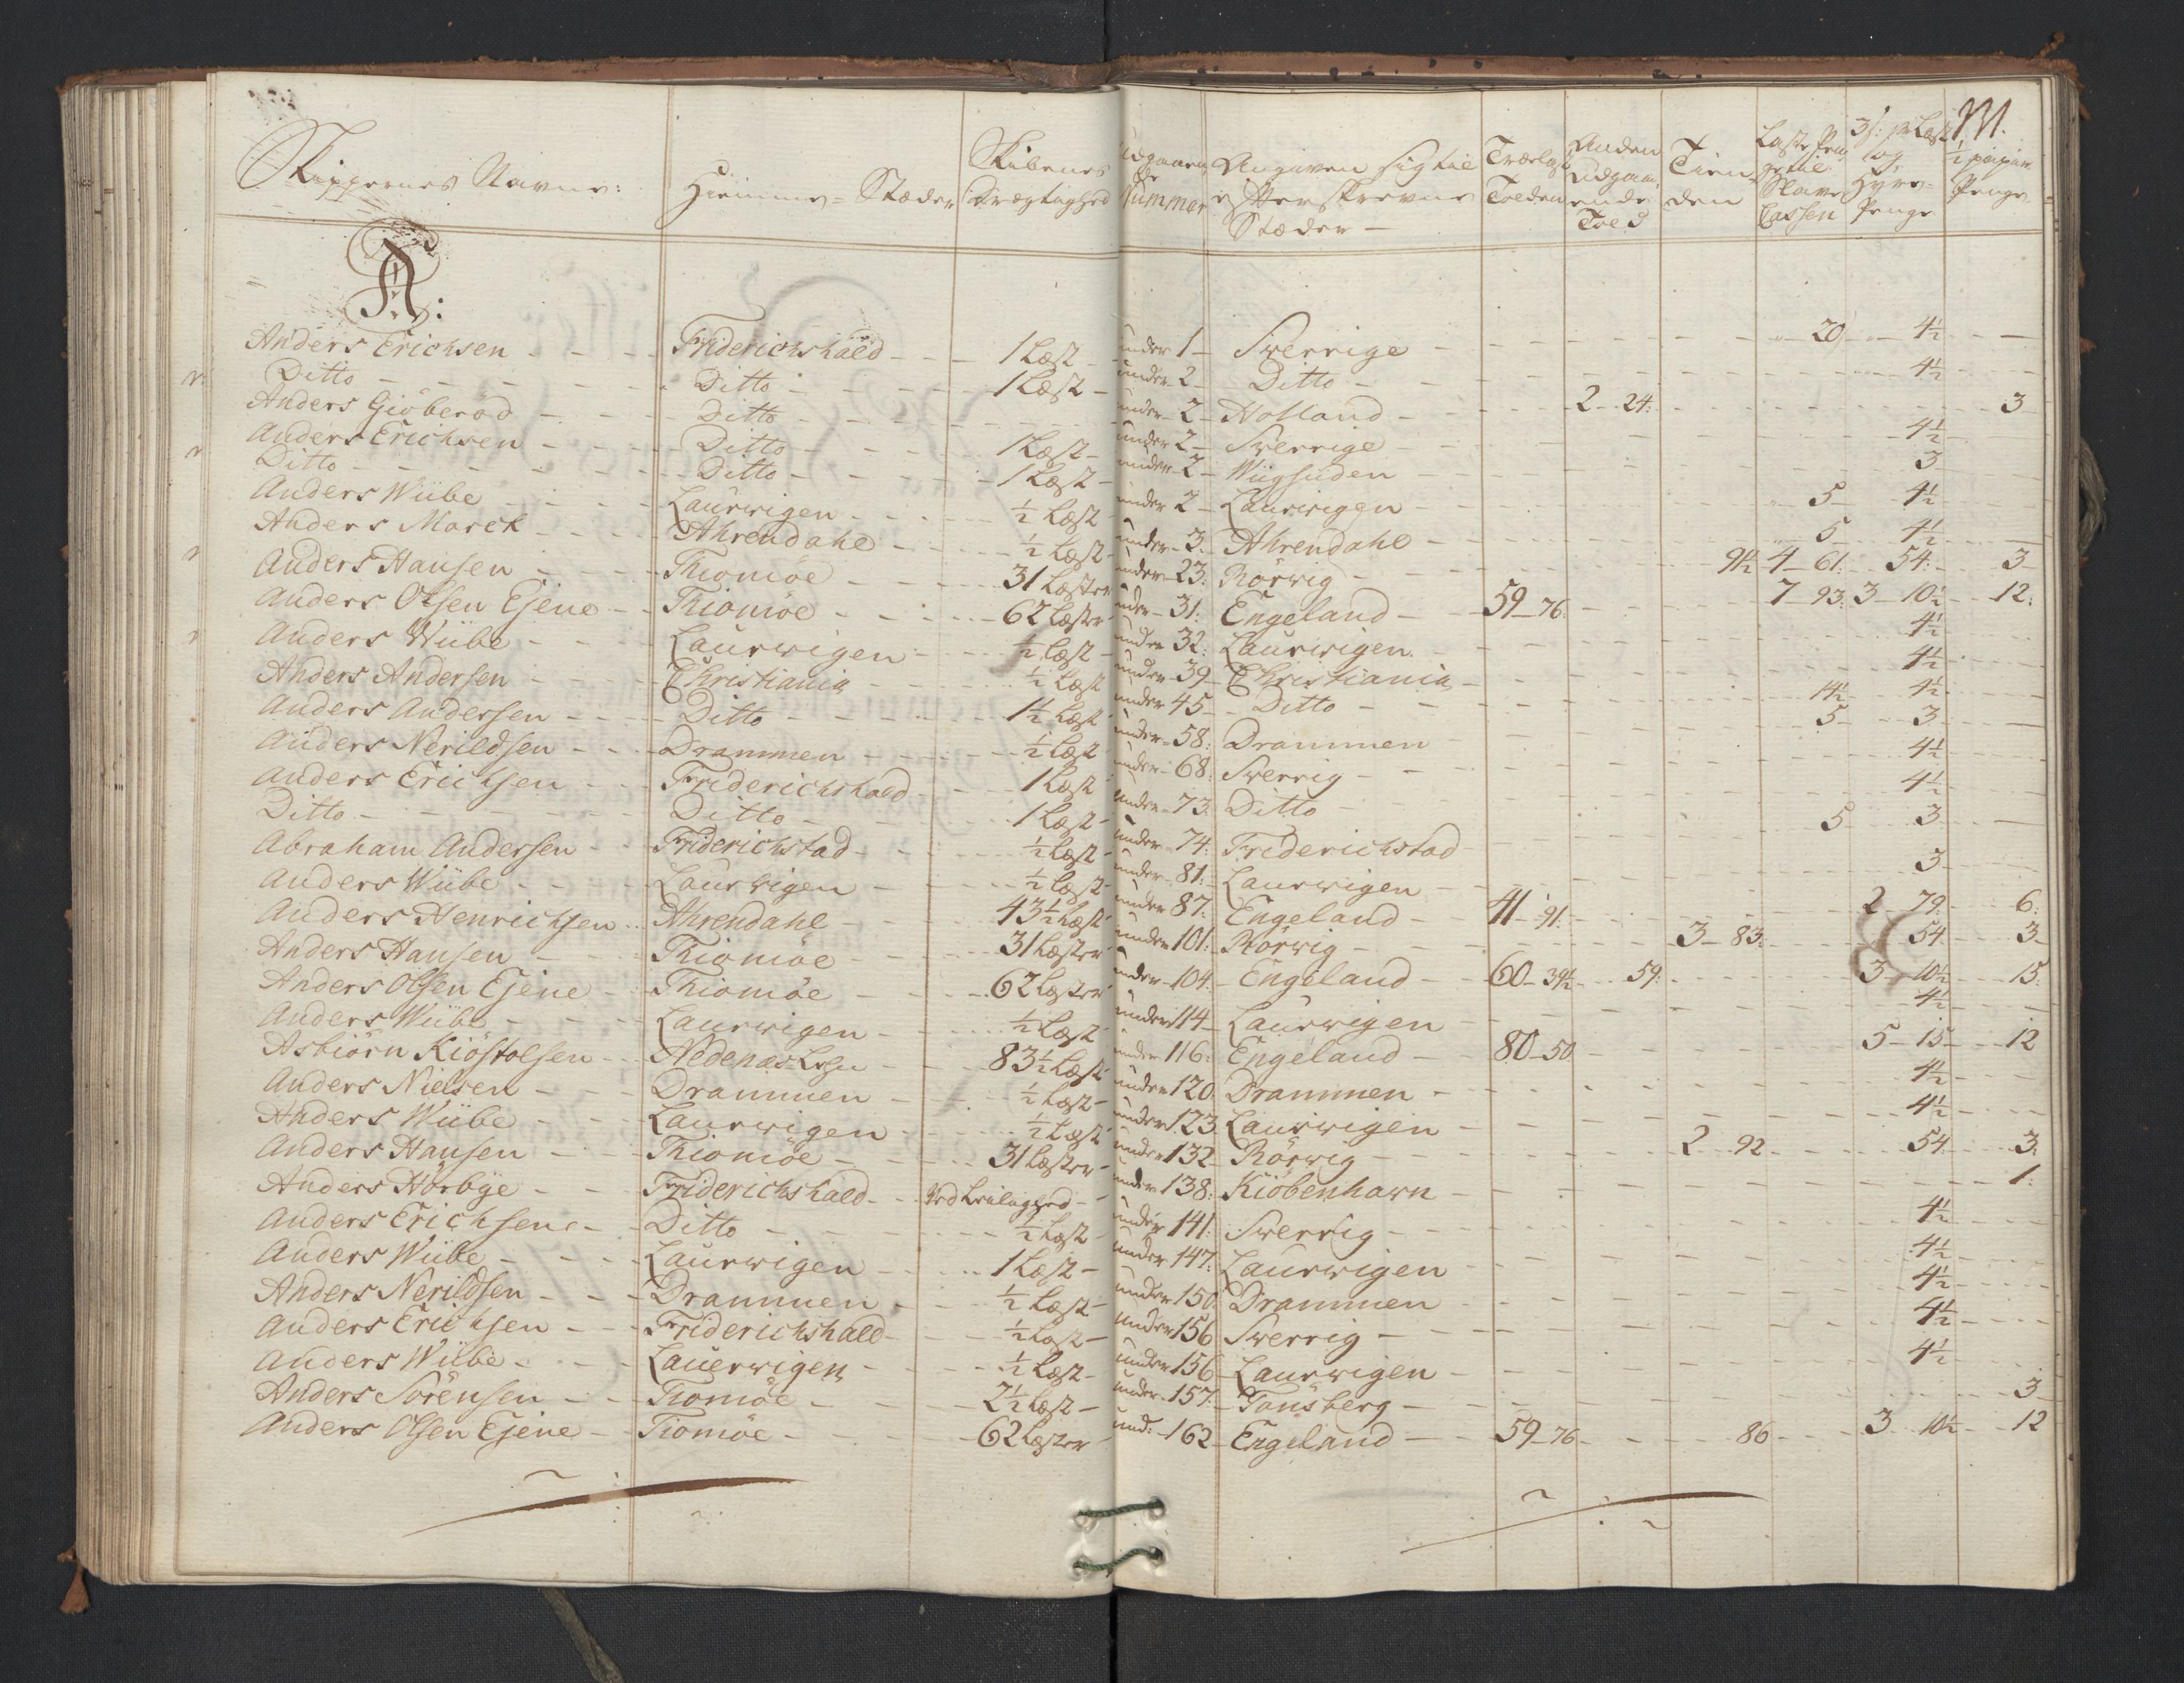 Skippernes Navne: Hiemme= Stæder Skibenes Drægtighed Udgaaende Nummer Angiven sig til efterskrevne Stæder — Trælast Tolden Anden udgaaende Told Tienden Laste Penge til Slave Cassen 3 s: pr Læst og Hyre= Penge ½ papiir Penge
A:
Anders Erichsen - - Friderichshald - - 1 Læst - under 1 - Sverrige - 20 - 4½ -
Ditto - - Ditto - - 1 Læst - under 2 - Ditto - 4½
Anders Giöberöd - - Ditto - - under 2 - Holland - 2 - 24: - 3
Anders Erichsen - - Ditto - - 1 Læst - under 2 - Sverrige - 4½
Ditto - - Ditto - - 1 Læst - under 2 - Wiigsüden - 3
Anders Wübe - - Laurwigen - - ½ Læst - under 2 - Laurwigen - 5 - 4½
Anders Marck - - Ahrendahl - - ½ Læst - under 3. Ahrendahl - 5 - 4½
Anders Hansen - - Thiomöe - - 31 Læster under 23: Rörwig - 91½ 4 - 61: 54: - 3
Anders Olsen Ejene - - Thiomöe - - 62 Læster under 31: Engeland - 59 - 76: 7 - 93: 3 - 10½ - 12:
Anders Wübe - - Laurwigen - - ½ Læst - under 32: Laurwigen - 4½
Anders Andersen - - Christiania - - ½ Læst under 39 - Christiania - 4½
Anders Andersen - - Ditto - - 1½ Læst under 45 - Ditto - 14½ - 4½
Anders Nerildsen - - Drammen - - ½ Læst under 58: Drammen - 5 - 3
Anders Erichsen - - Friderichshald - - 1 Læst under 68: Sverrig - 4½
Ditto - - Ditto - - 1 Læst - under 73: Ditto - 4½
Abraham Andersen - - Friderichstad - - ½ Læst - under 74: Friderichstad - 5 - 3
Anders Wübe - - Laurwigen - - ½ Læst - under 81: Laurwigen - 3
Anders Henrichsen - - Ahrendahl - - 43½ Læst under 87: Engeland - 41 - 91: - 2 - 79: - 6:
Anders Hansen - - Thiomöe - - 31 Læster under 101: Rörwig - 3 - 83: - 54 - 3
Anders Olsen Ejene - - Thiomöe - - 62 Læster under 104: Engeland - 60 - 39½ - 59: - 3 - 10½ - 15:
Anders Wübe - - Laurwigen - - ½ Læst under 114 - Laurwigen - 4½
Asbiörn Kiöstolsen - - Nedenæs Lehn - - 83½ Læst under 116: Engeland - 80 - 50 - 5 - 15 - 12
Anders Nielsen - - Drammen - - ½ Læst - under 120 Drammen - 4½
Anders Wübe - - Laurwigen - - ½ Læst under 123 Laurwigen - 4½
Anders Hansen - - Thiomöe - - 31 Læster - under 132 - Rörwig - 2 - 92 - 54 - 3:
Anders Hörbye - - Friderichshald - - under 138: Kiöbenhavn - 1:
Anders Erichsen - - Ditto - - ½ Læst - under 141: Sverrig - 4½
Anders Wübe - - Laurwigen - - 1 Læst - under 147: Laurwigen - 4½
Anders Nerildsen - - Drammen - - ½ Læst - under 150 Drammen - 4½
Anders Erichsen - - Friderichshald - - ½ Læst - under 156 Sverrig - 4½
Anders Wübe - - Lauerwigen - - ½ Læst - under 156 Laurwigen - 4½
Anders Sörensen - - Tiomöe - - 2½ Læst - under 157: Tönsberg - 3
Anders Olsen Ejene - - Tiomöe - - 62 Læster - und: 162 - Engeland - 59 - 76 - 86 - 3 - 10½ - 12